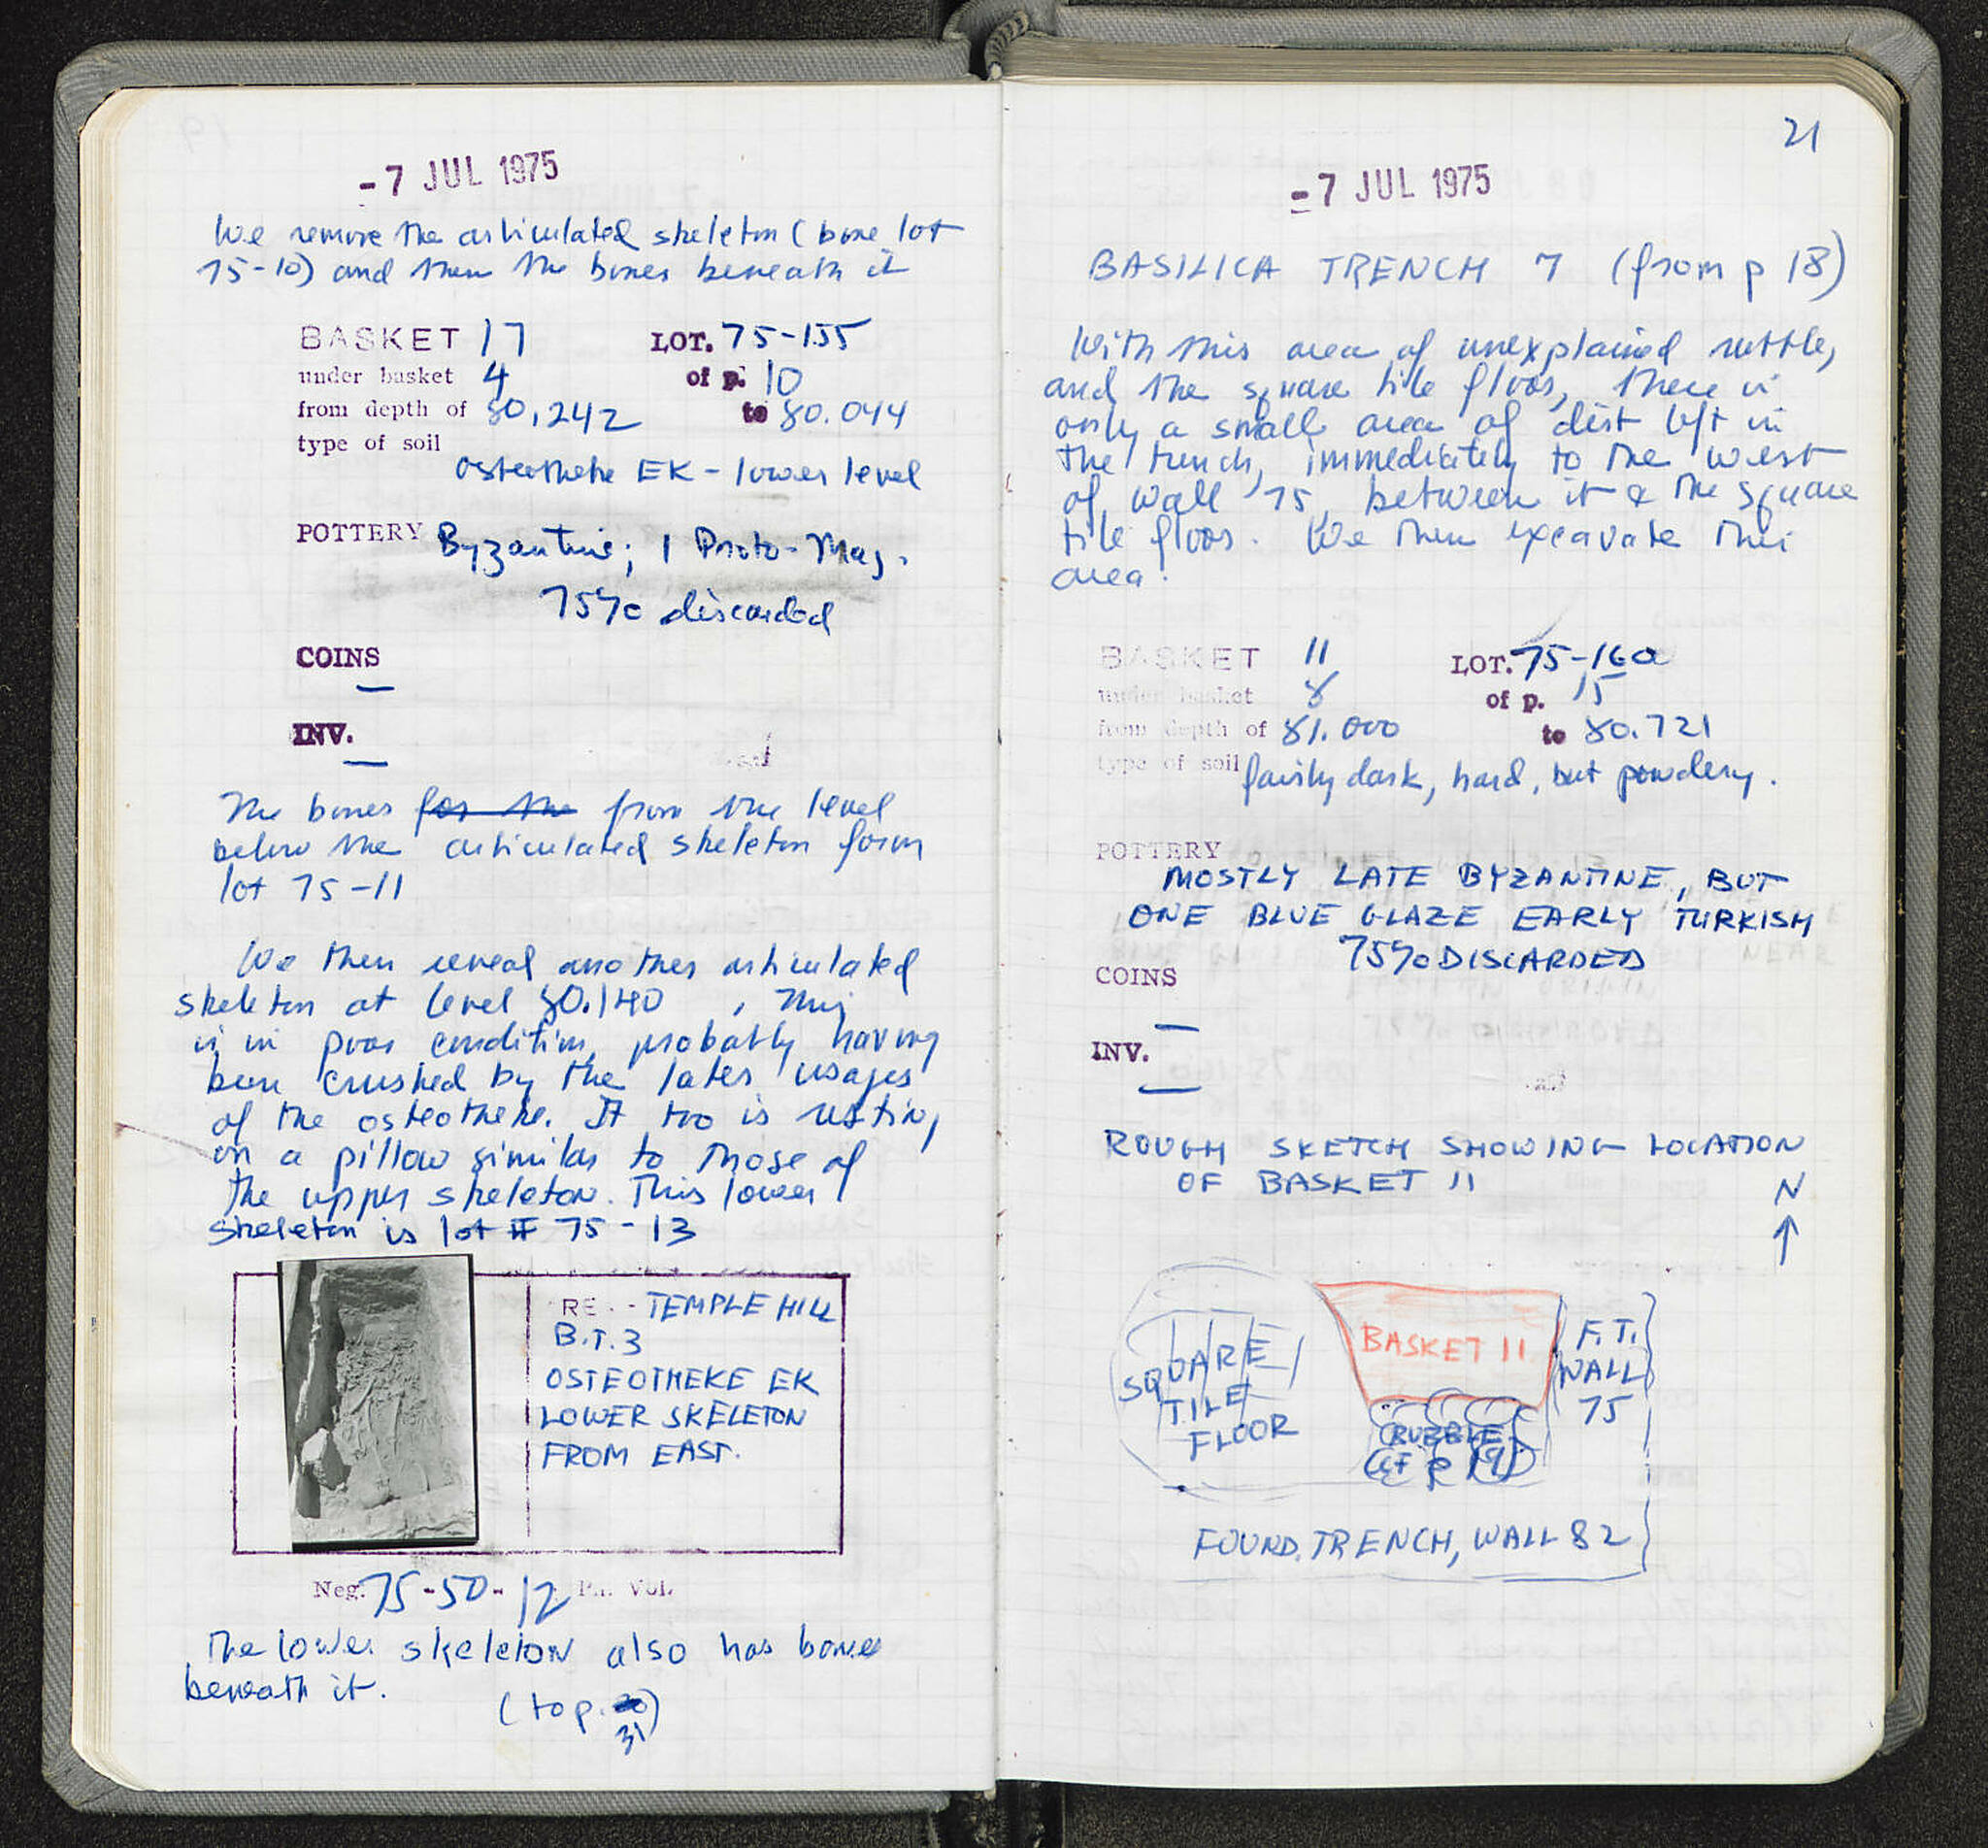 -7 JUL 1975
We remove the articulated skeleton (bone lot
75-10) and then the bones beneath it
BASKET 17 LOT. 75-155
under basket 4 of p. 10
from depth of 80,242 to 80.044
type of soil
osteotheke EK - lower level
POTTERY Byzantine; 1 Proto-Maj.
75% discarded
COINS
—
INV.
—
The bones for the from the level
below the articulated skeleton form
lot 75-11
We then reveal another articulated
skeleton at level 80.140 . This
is in poor condition, probably having
been crushed by the later usages
of the osteotheke. It too is resting
on a pillow similar to those of
the upper skeleton. This lower
skeleton is lot # 75-13
RE - TEMPLE HILL
B.T.3
OSTEOTHEKE EK
LOWER SKELETON
FROM EAST.
Neg. 75-50-12 Ph. Vol.
The lower skeleton also has bones
beneath it.
(to p. 31)
21
-7 JUL 1975
BASILICA TRENCH 7 (from p 18)
With this area of unexplained rubble,
and the square tile floor, there is
only a small area of dirt left in
the trench, immediately to the west
of wall 75, between it & the square
tile floor. We then excavate this
area.
BASKET 11 LOT. 75-160
under basket 8 of p. 15
from depth of 81.000 to 80.721
type of soil fairly dark, hard, but powdery.
POTTERY
MOSTLY LATE BYZANTINE, BUT
ONE BLUE GLAZE EARLY TURKISH
75% DISCARDED
COINS
—
INV.
—
ROUGH SKETCH SHOWING LOCATION
OF BASKET 11
N
SQUARE
TILE
FLOOR
BASKET 11
F.T.
WALL
75
RUBBLE
(cf p 19)
FOUND. TRENCH, WALL 82